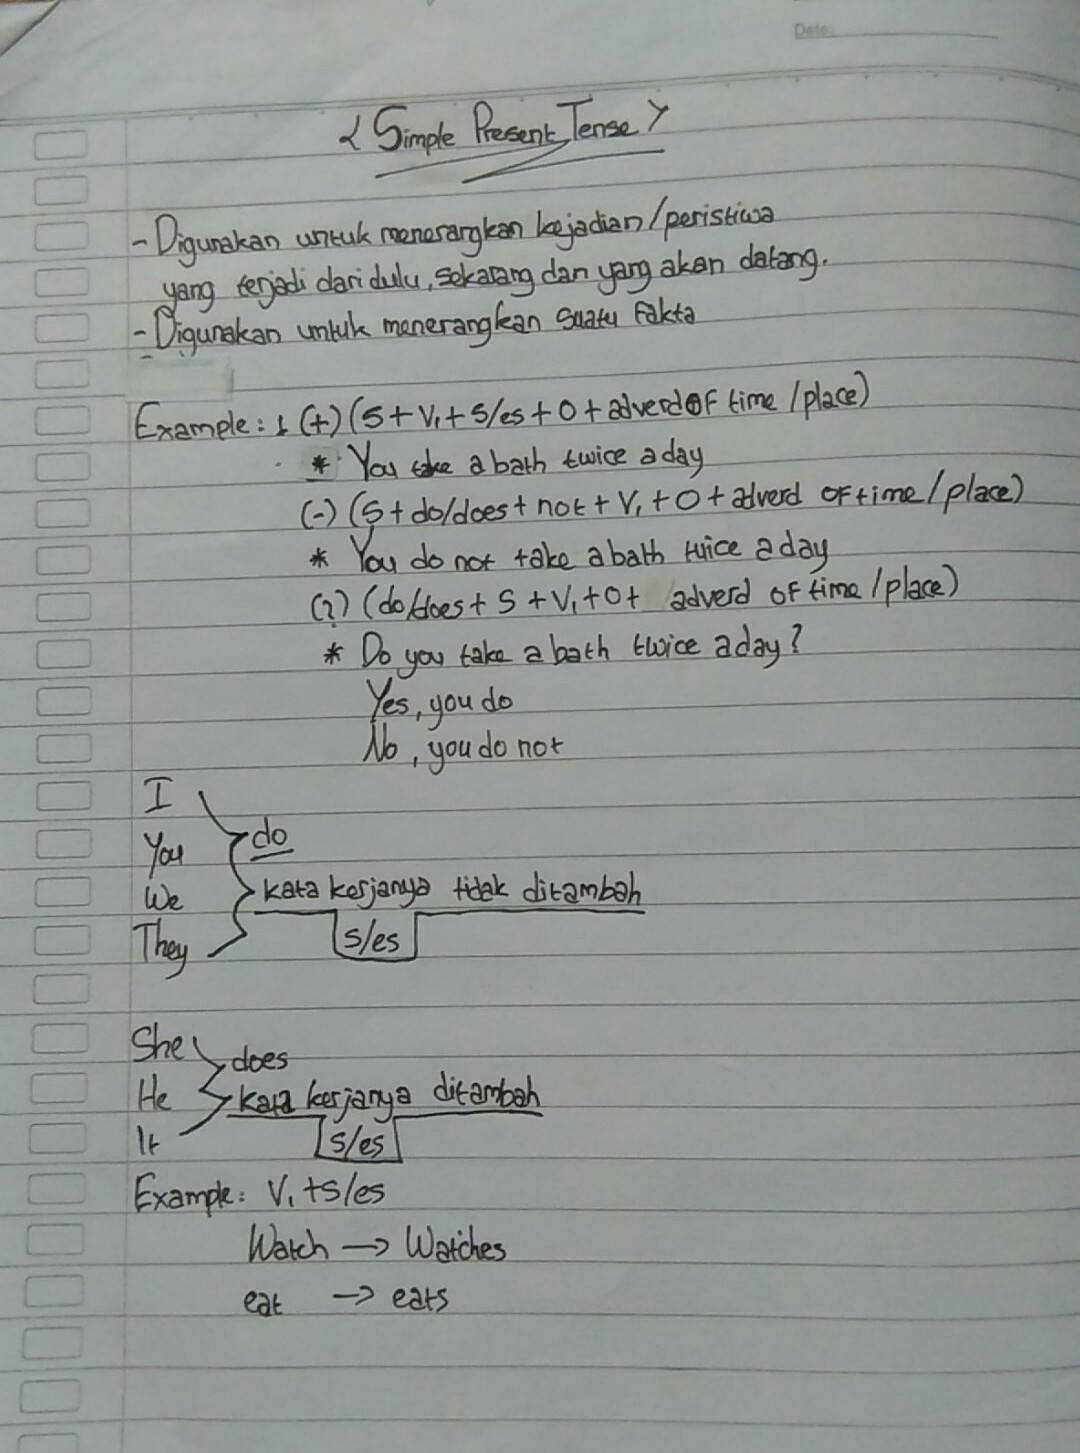 Date:
< Simple Present Tense >
- Digunakan untuk menerangkan kejadian/peristiwa
yang terjadi dari dulu, sekarang dan yang akan datang.
- Digunakan untuk menerangkan suatu fakta
Example: 1 (+) (S + V1 + S/es + O + adverd OF time /place)
* You take a bath twice a day
(-) (S + do/does + not + V1 + O + adverd OF time / place)
* You do not take a bath twice a day
(?) (do/does + S + V1 + O + adverd OF time /place)
* Do you take a bath twice a day?
Yes, you do
No, you do not
I
You do
We kata kerjanya tidak ditambah
They s/es
She does
He kata kerjanya ditambah
It s/es
Example: V1 + s/es
Watch -> Watches
eat -> eats